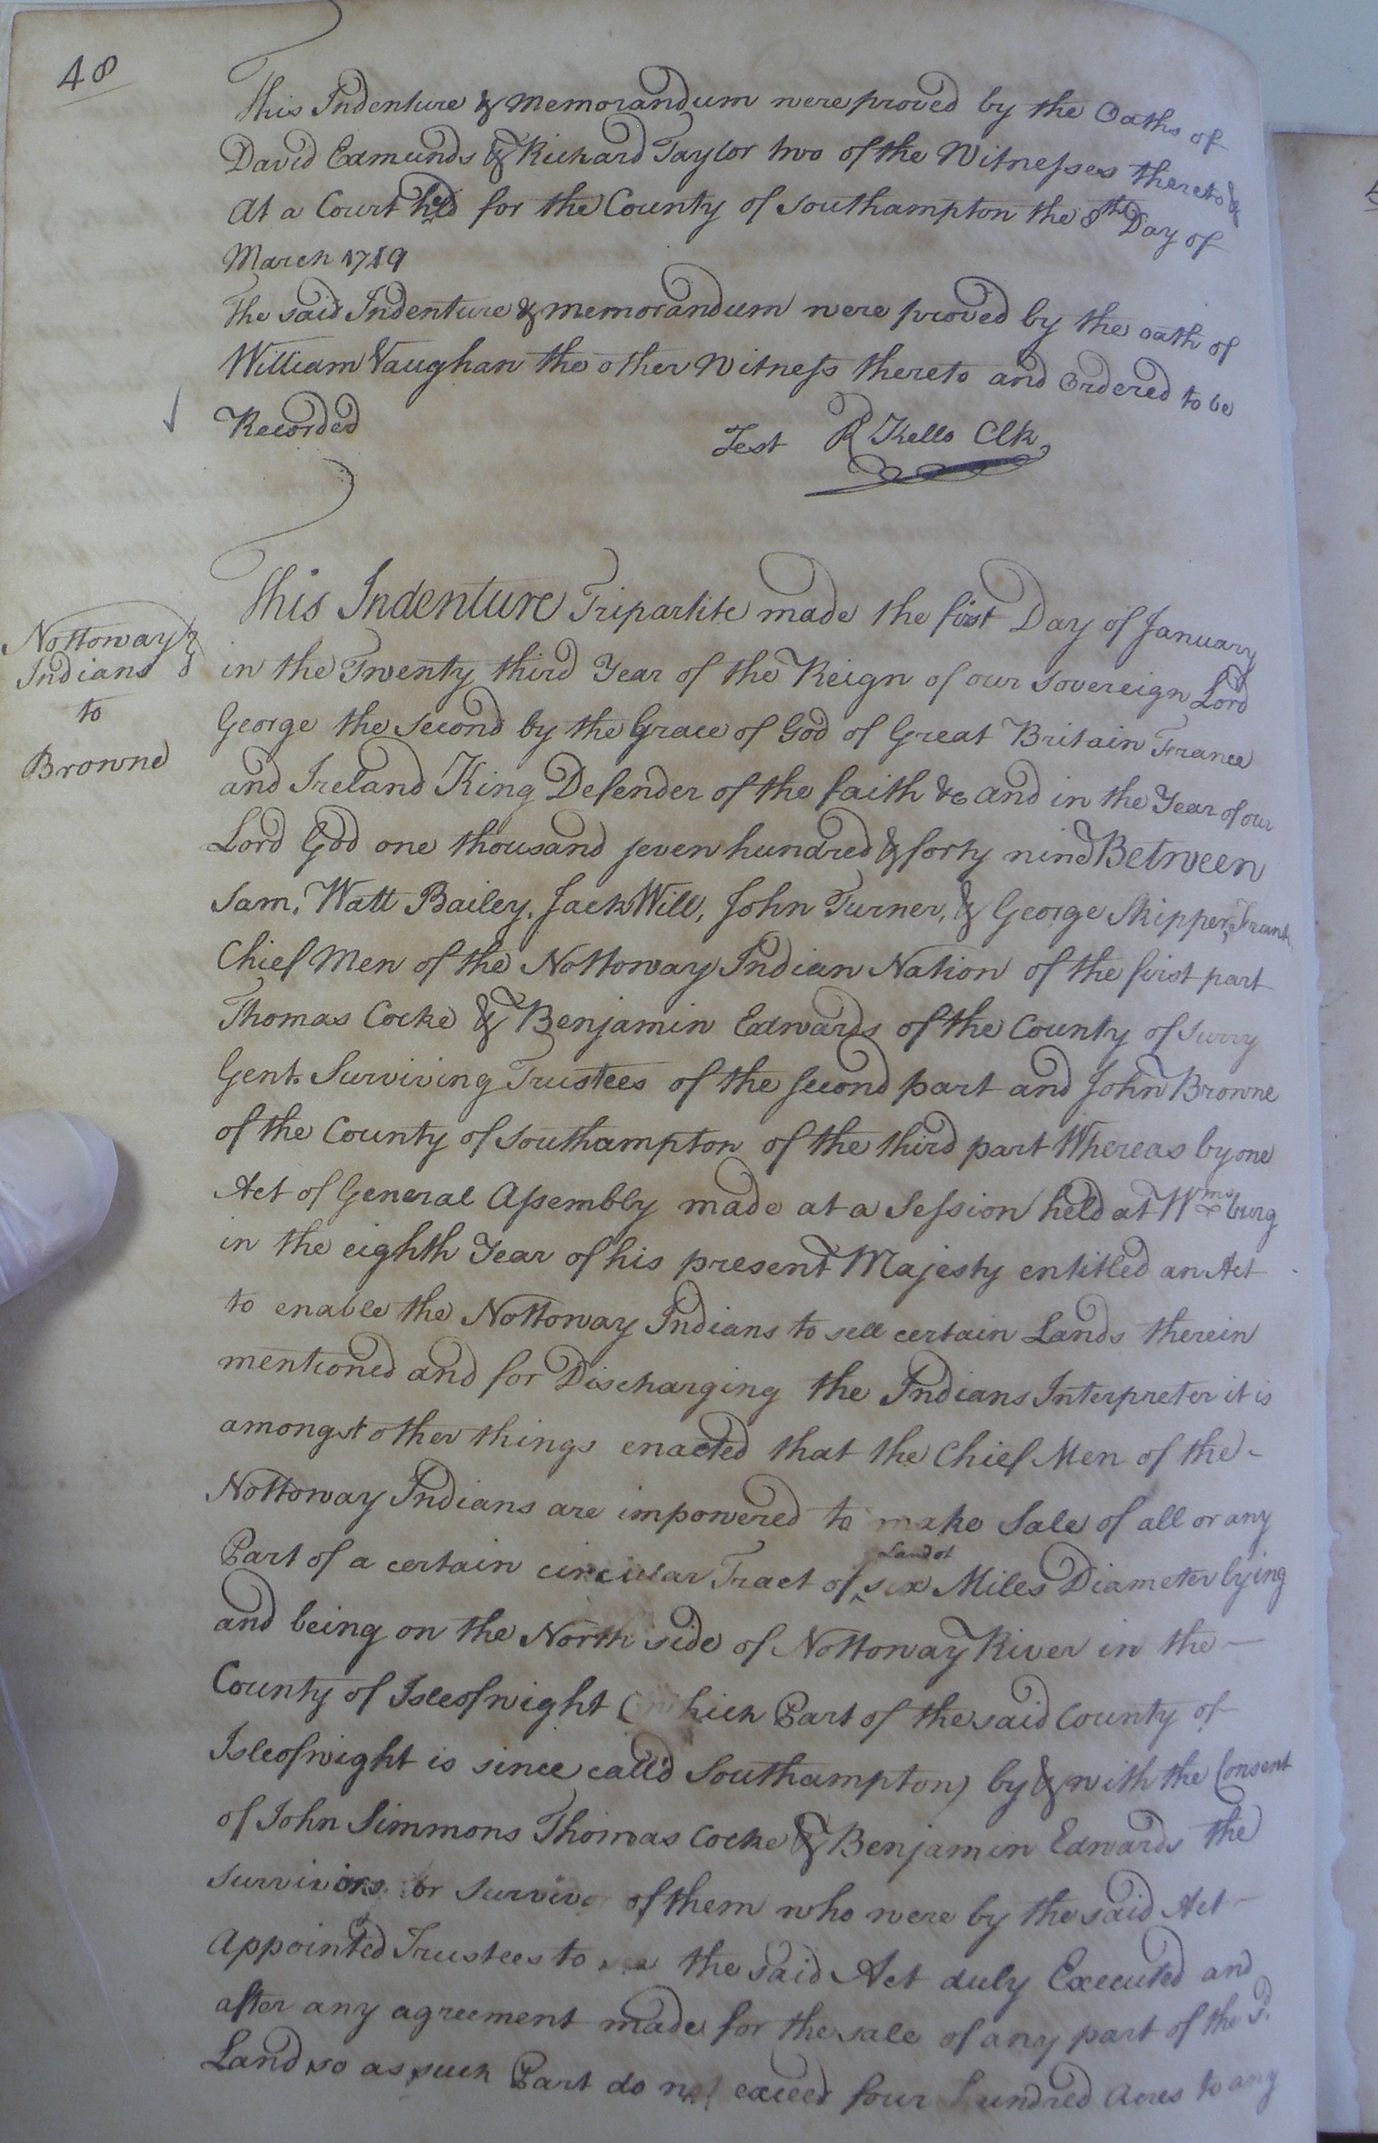 48
This Indenture & Memorandum were proved by the Oaths of
David Edmunds & Richard Taylor two of the Witnesses thereto &
At a Court held for the County of Southampton the 8th Day of
March 1749
The said Indenture & Memorandum were proved by the oath of
William Vaughan the other Witness thereto and Ordered to be
Recorded
Test R Kello Clk
Nottoway
Indians
to
Browne
This Indenture Tripartite made the first Day of January
in the Twenty third Year of the Reign of our Sovereign Lord
George the Second by the Grace of God of Great Britain France
and Ireland King Defender of the faith &c and in the Year of our
Lord God one thousand seven hundred & forty nine Between
Sam, Watt Bailey, Jack Will, John Turner, & George Skipper, Frank
Chief Men of the Nottoway Indian Nation of the first part
Thomas Cocke & Benjamin Edwards of the County of Surry
Gent. Surviving Trustees of the Second part and John Browne
of the County of Southampton of the third part Whereas by one
Act of General Assembly made at a Session held at Wmsburg
in the eighth Year of his present Majesty entitled an Act
to enable the Nottoway Indians to sell certain Lands therein
mentioned and for Discharging the Indians Interpreter it is
amongst other things enacted that the Chief Men of the
Nottoway Indians are impowered to make Sale of all or any
Part of a certain circular Tract of Land of six Miles Diameter lying
and being on the North side of Nottoway River in the
County of Isleofwight (which Part of the said County of
Isleofwight is since call'd Southampton) by & with the Consent
of John Simmons Thomas Cocke & Benjamin Edwards the
Survivors or Survivor of them who were by the said Act
Appointed Trustees to see the said Act duly Executed and
after any agreement made for the sale of any part of the sd.
Land so as such Part do not exceed four hundred Acres to any